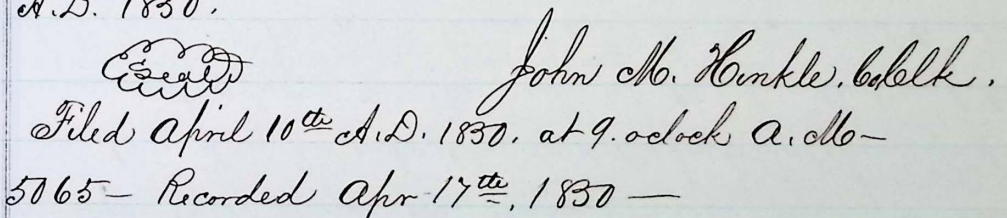 A.D. 1830.
(Seal) John M. Hinkle. Co Clk.
Filed April 10th A.D. 1830. at 9. oclock A.M—
5065— Recorded Apr 17th, 1830—